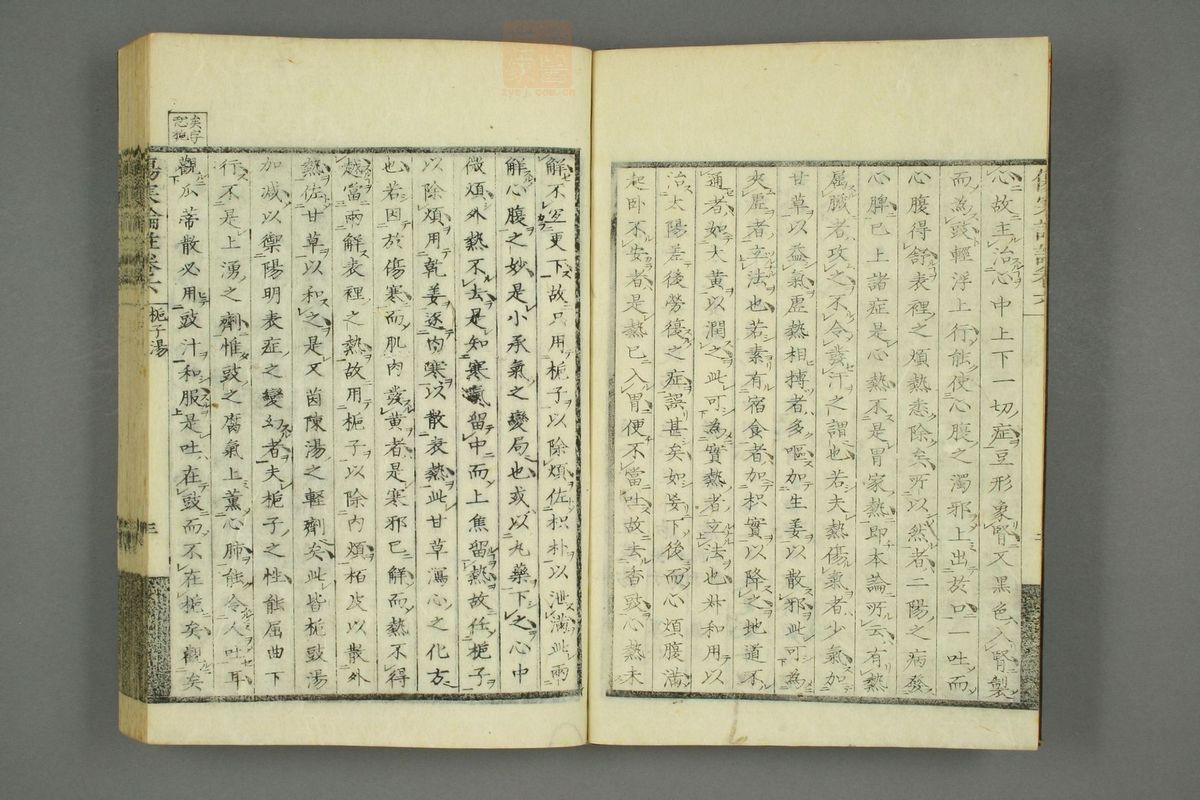 心故主治心中上下一切症豆形象腎又黑色入腎製
而為豉輕浮上行能使心腹之濁邪上出於口一吐而
心腹得舒表裡之煩熱悉除矣所以然者二陽之病發
心脾已上諸症是心熱不是胃家熱即本論所云有熱
屬臟者攻之不令發汗之謂也若夫熱傷氣者少氣加
甘草以益氣虛熱相摶者多嘔加生姜以散邪此可為
夾虛者立法也若素有宿食者加枳實以降之地道不
通者如大黃以潤之此可為實熱者立法也 和用以
治太陽差後勞復之症誤甚矣如妄下後而心煩腹滿
起卧不安者是熱已入胃便不當吐故去香豉心熱未
解不宜更下故只用梔子以除煩佐枳朴以泄滿此兩
解心腹之妙是小承氣之變局也或以丸藥下之心中
微煩外熱不去是知寒氣留中而上焦留熱故任梔子
以除煩用乾姜逐內寒以散表熱此甘草瀉心之化方
也若因於傷寒而肌肉發黃者是寒邪已解而熱不得
越當兩解表裡之熱故用梔子以除內煩栢皮以散外
熱佐甘草以和之是又茵陳湯之輕劑矣此皆梔豉湯
加減以禦陽明表症之變幻者夫梔子之性能屈曲下
行不是上湧之劑惟豉之腐氣上薰心肺能令人吐耳
觀瓜蒂散必用豉汁和服是吐在豉而不在梔矣觀矣
矣字
恐
傷寒論註卷六
梔子湯
三
zycj.com.cn